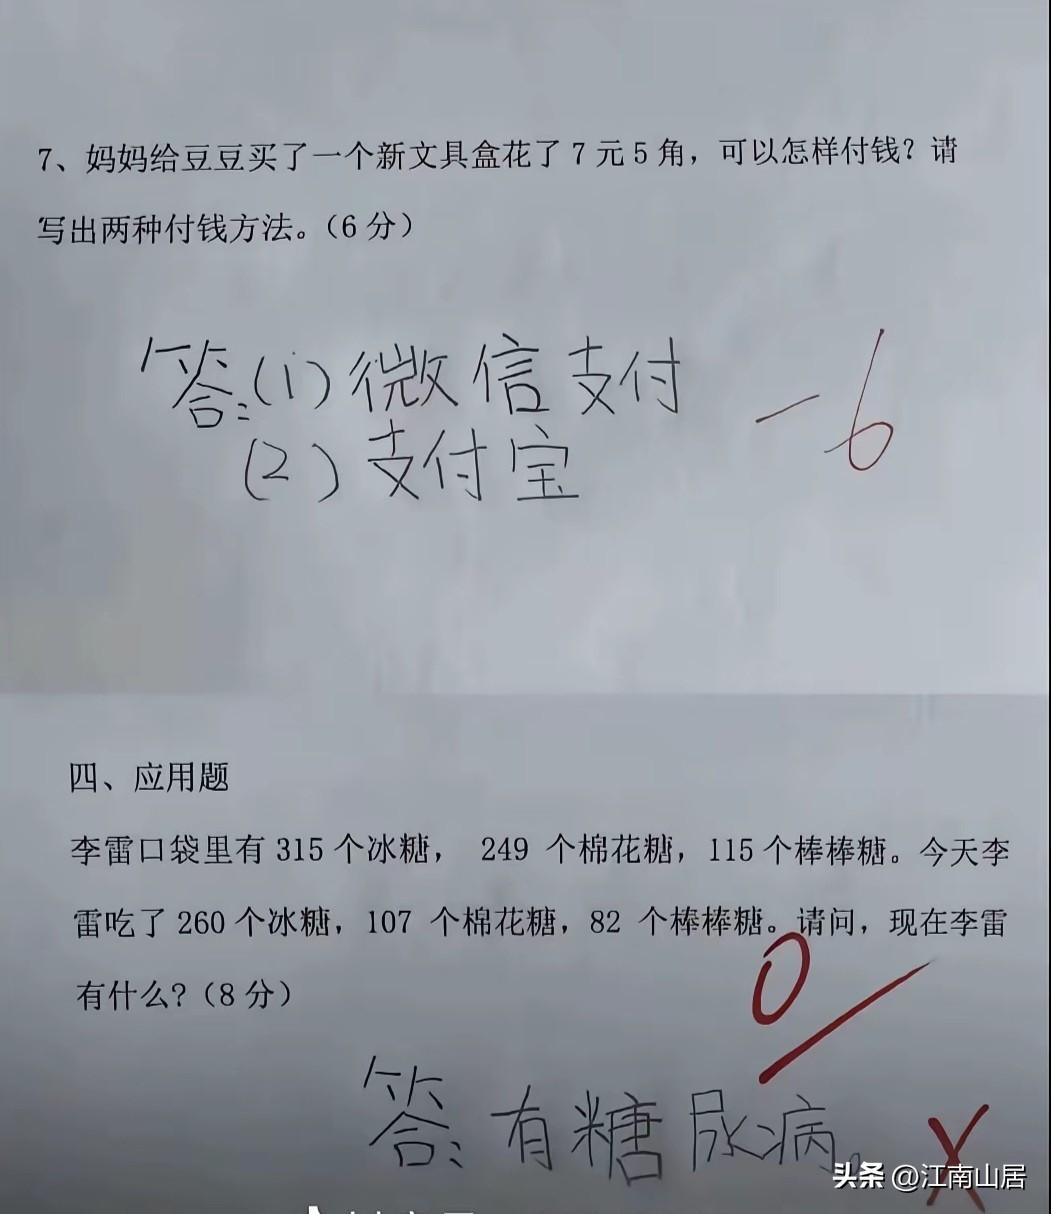 7、妈妈给豆豆买了一个新文具盒花了7元5角，可以怎样付钱？请
写出两种付钱方法。（6分）
答：(1)微信支付
(2)支付宝
-6
四、应用题
李雷口袋里有315个冰糖， 249 个棉花糖，115个棒棒糖。今天李
雷吃了260个冰糖，107 个棉花糖，82 个棒棒糖。请问，现在李雷
有什么?（8分）
0
答：有糖尿病。
X
头条 @江南山居